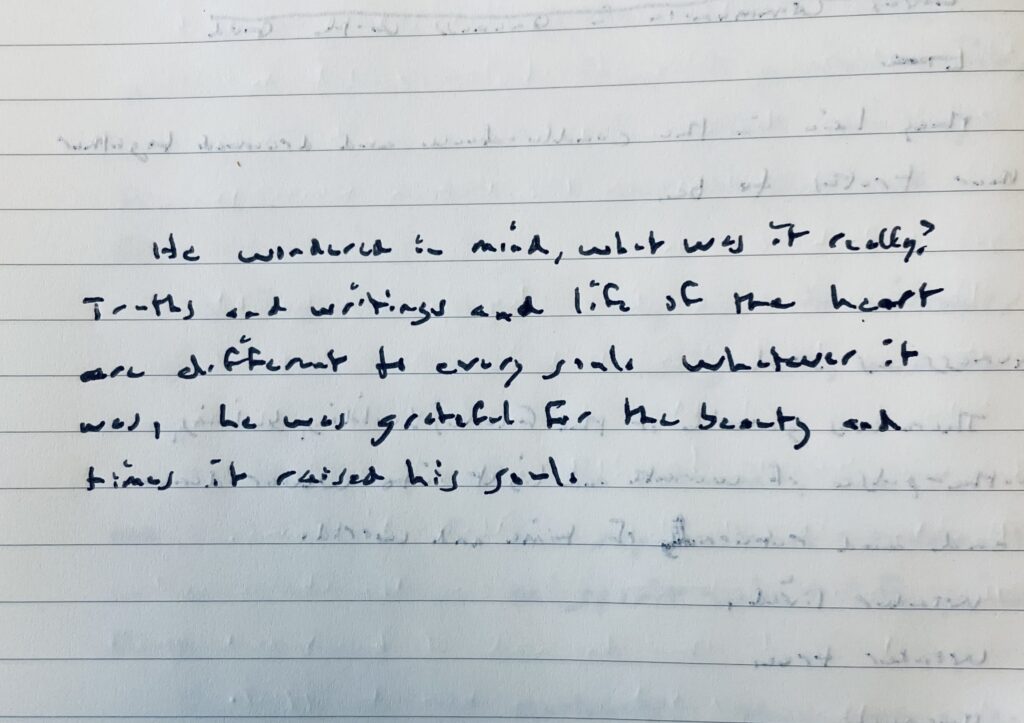 He wondered in mind, what was it really?
Truths and writings and life of the heart
are different to every soul. Whatever it
was, he was grateful for the beauty and
times it raised his soul.